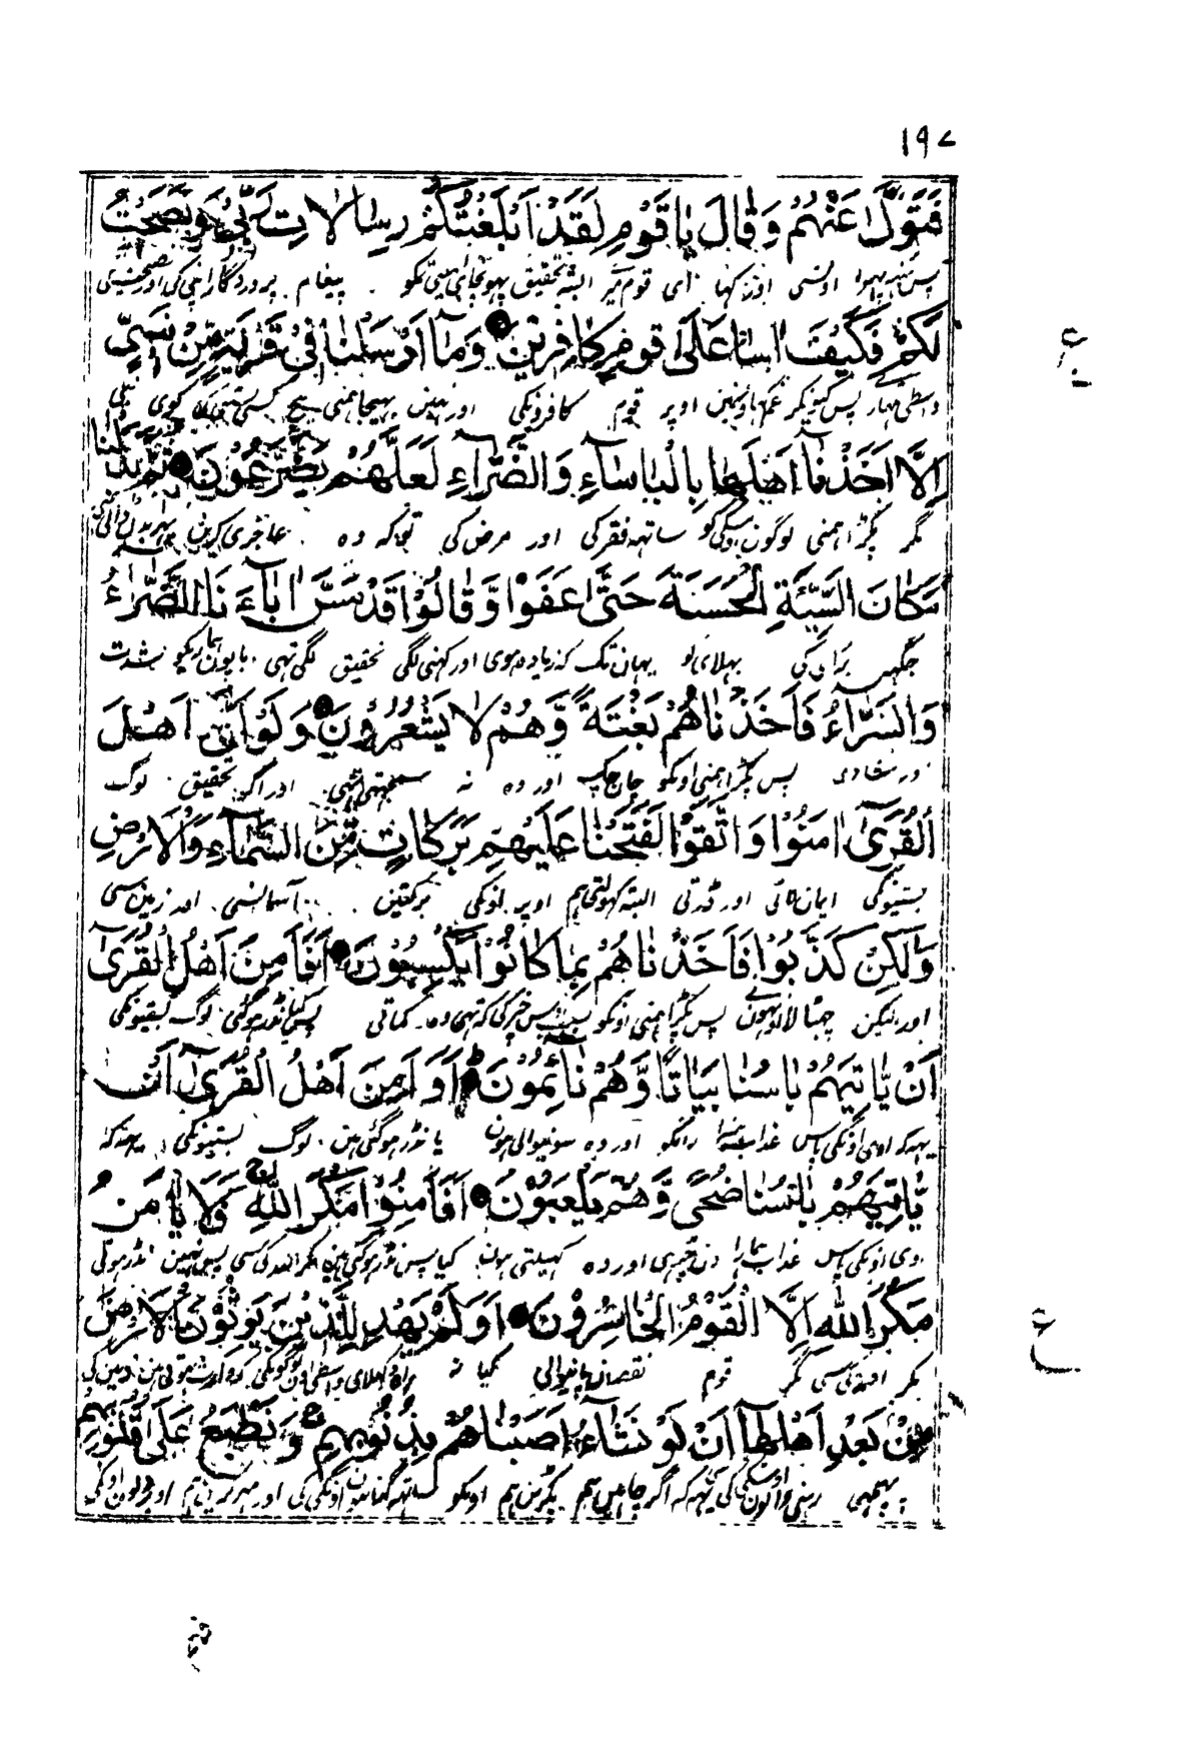 ۱۹۷
فَتَوَلّٰى عَنْهُمْ وَقَالَ يَا قَوْمِ لَقَدْ اَبْلَغْتُكُمْ رِسَالَاتِ رَبِّيْ وَنَصَحْتُ
پس منہ پہیرا اونسی اور کہا ای قوم میری البتہ تحقیق پہونچائی مینی تمکو پیغام پروردگار اپنی کی اور
ع
لَكُمْ فَكَيْفَ اٰسٰى عَلٰى قَوْمٍ كَافِرِيْنَ وَمَا اَرْسَلْنَا فِيْ قَرْيَةٍ مِّنْ نَّبِيٍّ
واسطی تمہاری پس کیونکر غم کہاؤن مین اوپر قوم کافرونکی اور نہین بہیجا ہمنی بیچ کسی بستی کی کوی نبی
اِلَّا اَخَذْنَا اَهْلَهَا بِالْبَاْسَآءِ وَالضَّرَّآءِ لَعَلَّهُمْ يَضَّرَّعُوْنَ ثُمَّ بَدَّلْنَا
مگر پکڑا ہمنی لوگون اوسکی کو ساتہہ فقر کی اور مرض کی توکہ وہ عاجزی کرین پہر بدل ڈالی
مَكَانَ السَّيِّئَةِ الْحَسَنَةَ حَتّٰى عَفَوْا وَّقَالُوْا قَدْ مَسَّ اٰبَآءَ نَا الضَّرَّآءُ
جگہہ برای کی بہلای کو یہان تک کہ زیادہ ہوی اور کہنی لگی تحقیق لگی تہی باپون ہماریکو شدت
وَالسَّرَّآءُ فَاَخَذْنَاهُمْ بَغْتَةً وَّهُمْ لَا يَشْعُرُوْنَ وَلَوْ اَنَّ اَهْلَ
اور شادی پس پکڑا ہمنی اونکو اور وہ نہ سمجہتی تہی اور اگر تحقیق لوگ
الْقُرٰٓى اٰمَنُوْا وَاتَّقَوْا لَفَتَحْنَا عَلَيْهِمْ بَرَكَاتٍ مِّنَ السَّمَآءِ وَالْاَرْضِ
بستیونکی ایمان لاتی اور ڈرتی البتہ کہولتی ہم اوپر اونکی برکتین آسمانسی اور زمین سی
وَلٰكِنْ كَذَّبُوْا فَاَخَذْنَاهُمْ بِمَا كَانُوْا يَكْسِبُوْنَ اَفَاَمِنَ اَهْلُ الْقُرٰٓى
اور لیکن جہٹلایا اونہون نی پس پکڑا ہمنی اونکو بسبب اس چیز کی کہ تہی وہ کماتی پس کیا نڈر ہوگئی لوگ بستیونکی
اَنْ يَّاْتِيَهُمْ بَاْسُنَا بَيَاتًا وَّهُمْ نَآئِمُوْنَ اَوَ اَمِنَ اَهْلُ الْقُرٰٓى اَنْ
یہہ کہ اوی اونکی پاس عذاب ہمارا راتکو اور وہ سونیوالی ہون یا نڈر ہوگئی ہین لوگ بستیونکی یہہ کہ
يَّاْتِيَهُمْ بَاْسُنَا ضُحًى وَّهُمْ يَلْعَبُوْنَ اَفَاَمِنُوْا مَكْرَ اللّٰهِ فَلَا يَاْمَنُ
اوی اونکی پاس عذاب ہمارا دن چڑہی اور وہ کہیلتی ہون کیا پس نڈر ہوگئی ہین مکر اللہ کی سی پس نہین نڈر ہوتی
مَكْرَ اللّٰهِ اِلَّا الْقَوْمُ الْخَاسِرُوْنَ اَوَلَمْ يَهْدِ لِلَّذِيْنَ يَرِثُوْنَ الْاَرْضَ
ع
مکر اللہ کی سی مگر قوم نقصان پانیوالی کیا نہ راہ دکہلای واسطی اون لوگونکی کہ وارث ہوتی ہین زمین کی
مِنْ بَعْدِ اَهْلِهَا اَنْ لَّوْ نَشَآءُ اَصَبْنَاهُمْ بِذُنُوْبِهِمْ وَنَطْبَعُ عَلٰى قُلُوْبِهِمْ
پیچہی رہنی والون اوسکی کی یہہ کہ اگر چاہین ہم پکڑین ہم اونکو ساتہہ گناہون اونکی کی اور مہر کرین ہم اوپر دلون اونکی